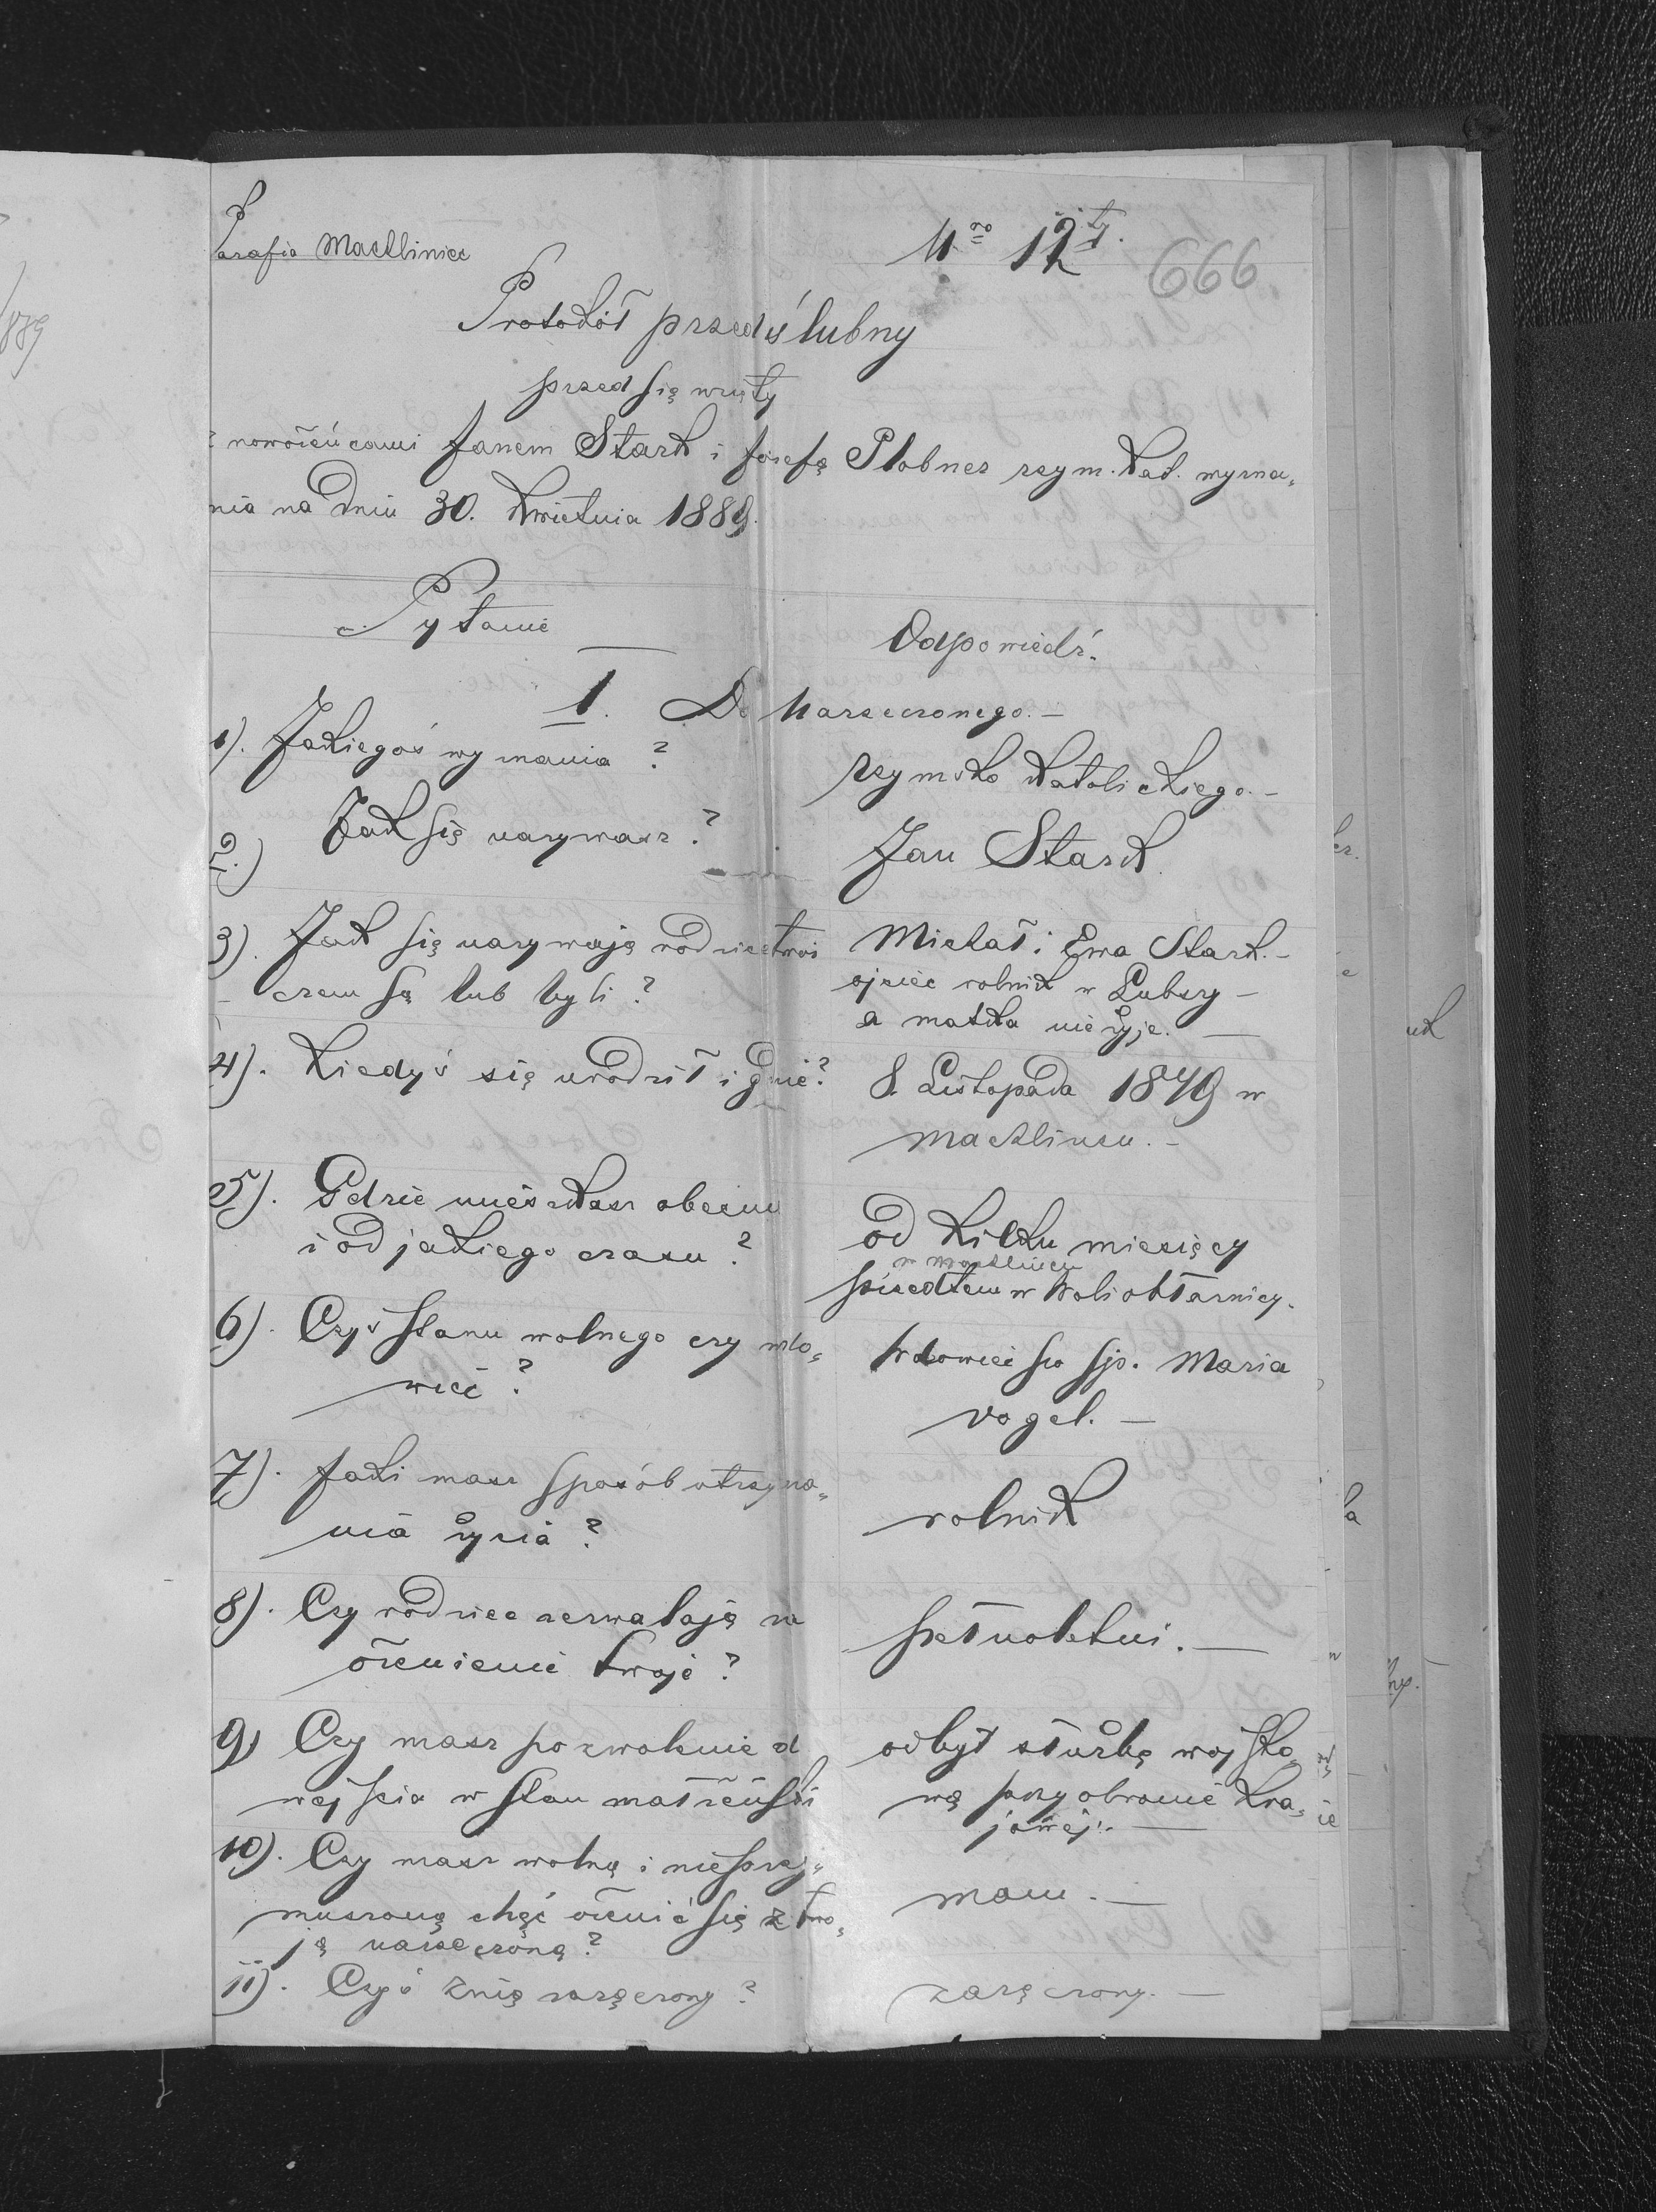 Parafia Machliniec
Nro 12ty.
666
Protokół przedślubny
przedsięwzięty
z nowożeńcami Janem Stark i Józefą Plobner rzym. kat. wyzna„
nia na dniu 30. Kwietnia 1889.
Pytanie
Odpowiedź.
I. Do Narzeczonego.—
1). Jakiegoś wyznania?
rzymsko katolickiego.—
2.) Jak się nazywasz?
Jan Stark.
3). Jak się nazywają rodzice twoi
czem są lub byli?
Michał i Ewa Stark.—
ojciec rolnik w Lubszy—
a matka nie żyje.—
4). Kiedyś się urodził i gdzie?
8. Listopada 1849 w
Machlińcu.—
5). Gdzie mieszkasz obecnie
i od jakiego czasu?
od kilku miesięcy
w Machlińcu
przedtem w Woli obłaznicy.
6). Czyś stanu wolnego czy wdo„
wiec?
Wdowiec po śp. Maria
Vogel.—
7). Jaki masz sposób utrzyma„
nia życia?
rolnik
8). Czy rodzice zezwalają na
ożenienie twoje?
pełnoletni.—
9) Czy masz pozwolenie d
wejścia w stan małżeński
odbył służbę wojsko„
wą przy obronie kra„
jowej.—
10). Czy masz wolną i nieprzy„
muszoną chęć ożenić się z two„
ją narzeczoną?
mam.—
11). Czyś z nią zaręczony?
zaręczony.—
1889